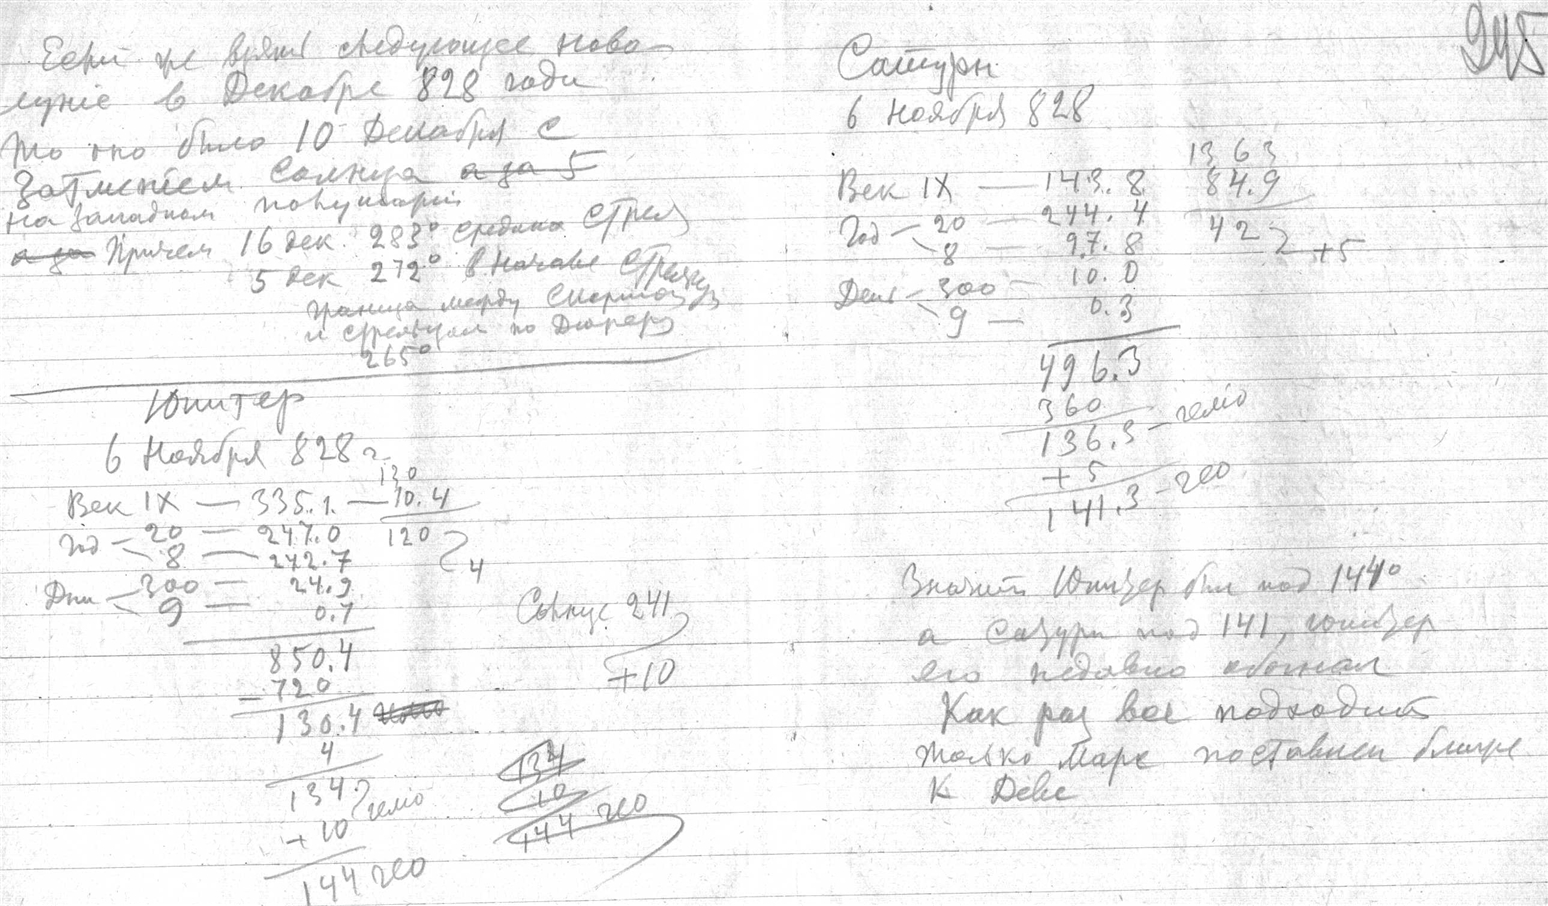 Если же взять следующее ново-
луніе в Декабре 828 года
то оно было 10 Декабря с
Затменіем Солнца а за 5
на западном полушаріи
а за Причем 16 дек. 283° средина Стрел
5 дек 272° в начале Стрельца
граница между Скорпіо
и стрельцом по Дюреру
265°
Юпитер
6 Ноября 828 г.
130
Век IX — 335.1. — 10.4
Год — 20 — 247.0 120
8 — 242.7 4
Дни — 300 — 24.9
9 — 0.7
850.4
— 720
130.4
4
134 гелио
+ 10
144 гео
Солнце 241
+10
134
10
144 гео
245
Сатурн
6 Ноября 828
1363
Век IX — 143.8 84.9
Год — 20 — 244.4 42
8 — 97.8 2 +5
Дни — 300 — 10.0
9 — 0.3
496.3
360
136.3 — гелио
+ 5
141.3 — гео
Значит Юпитер был под 144°
а Сатурн под 141, юпитер
его недавно обогнал
Как раз все подходит
только Марс поставлен ближе
к Деве